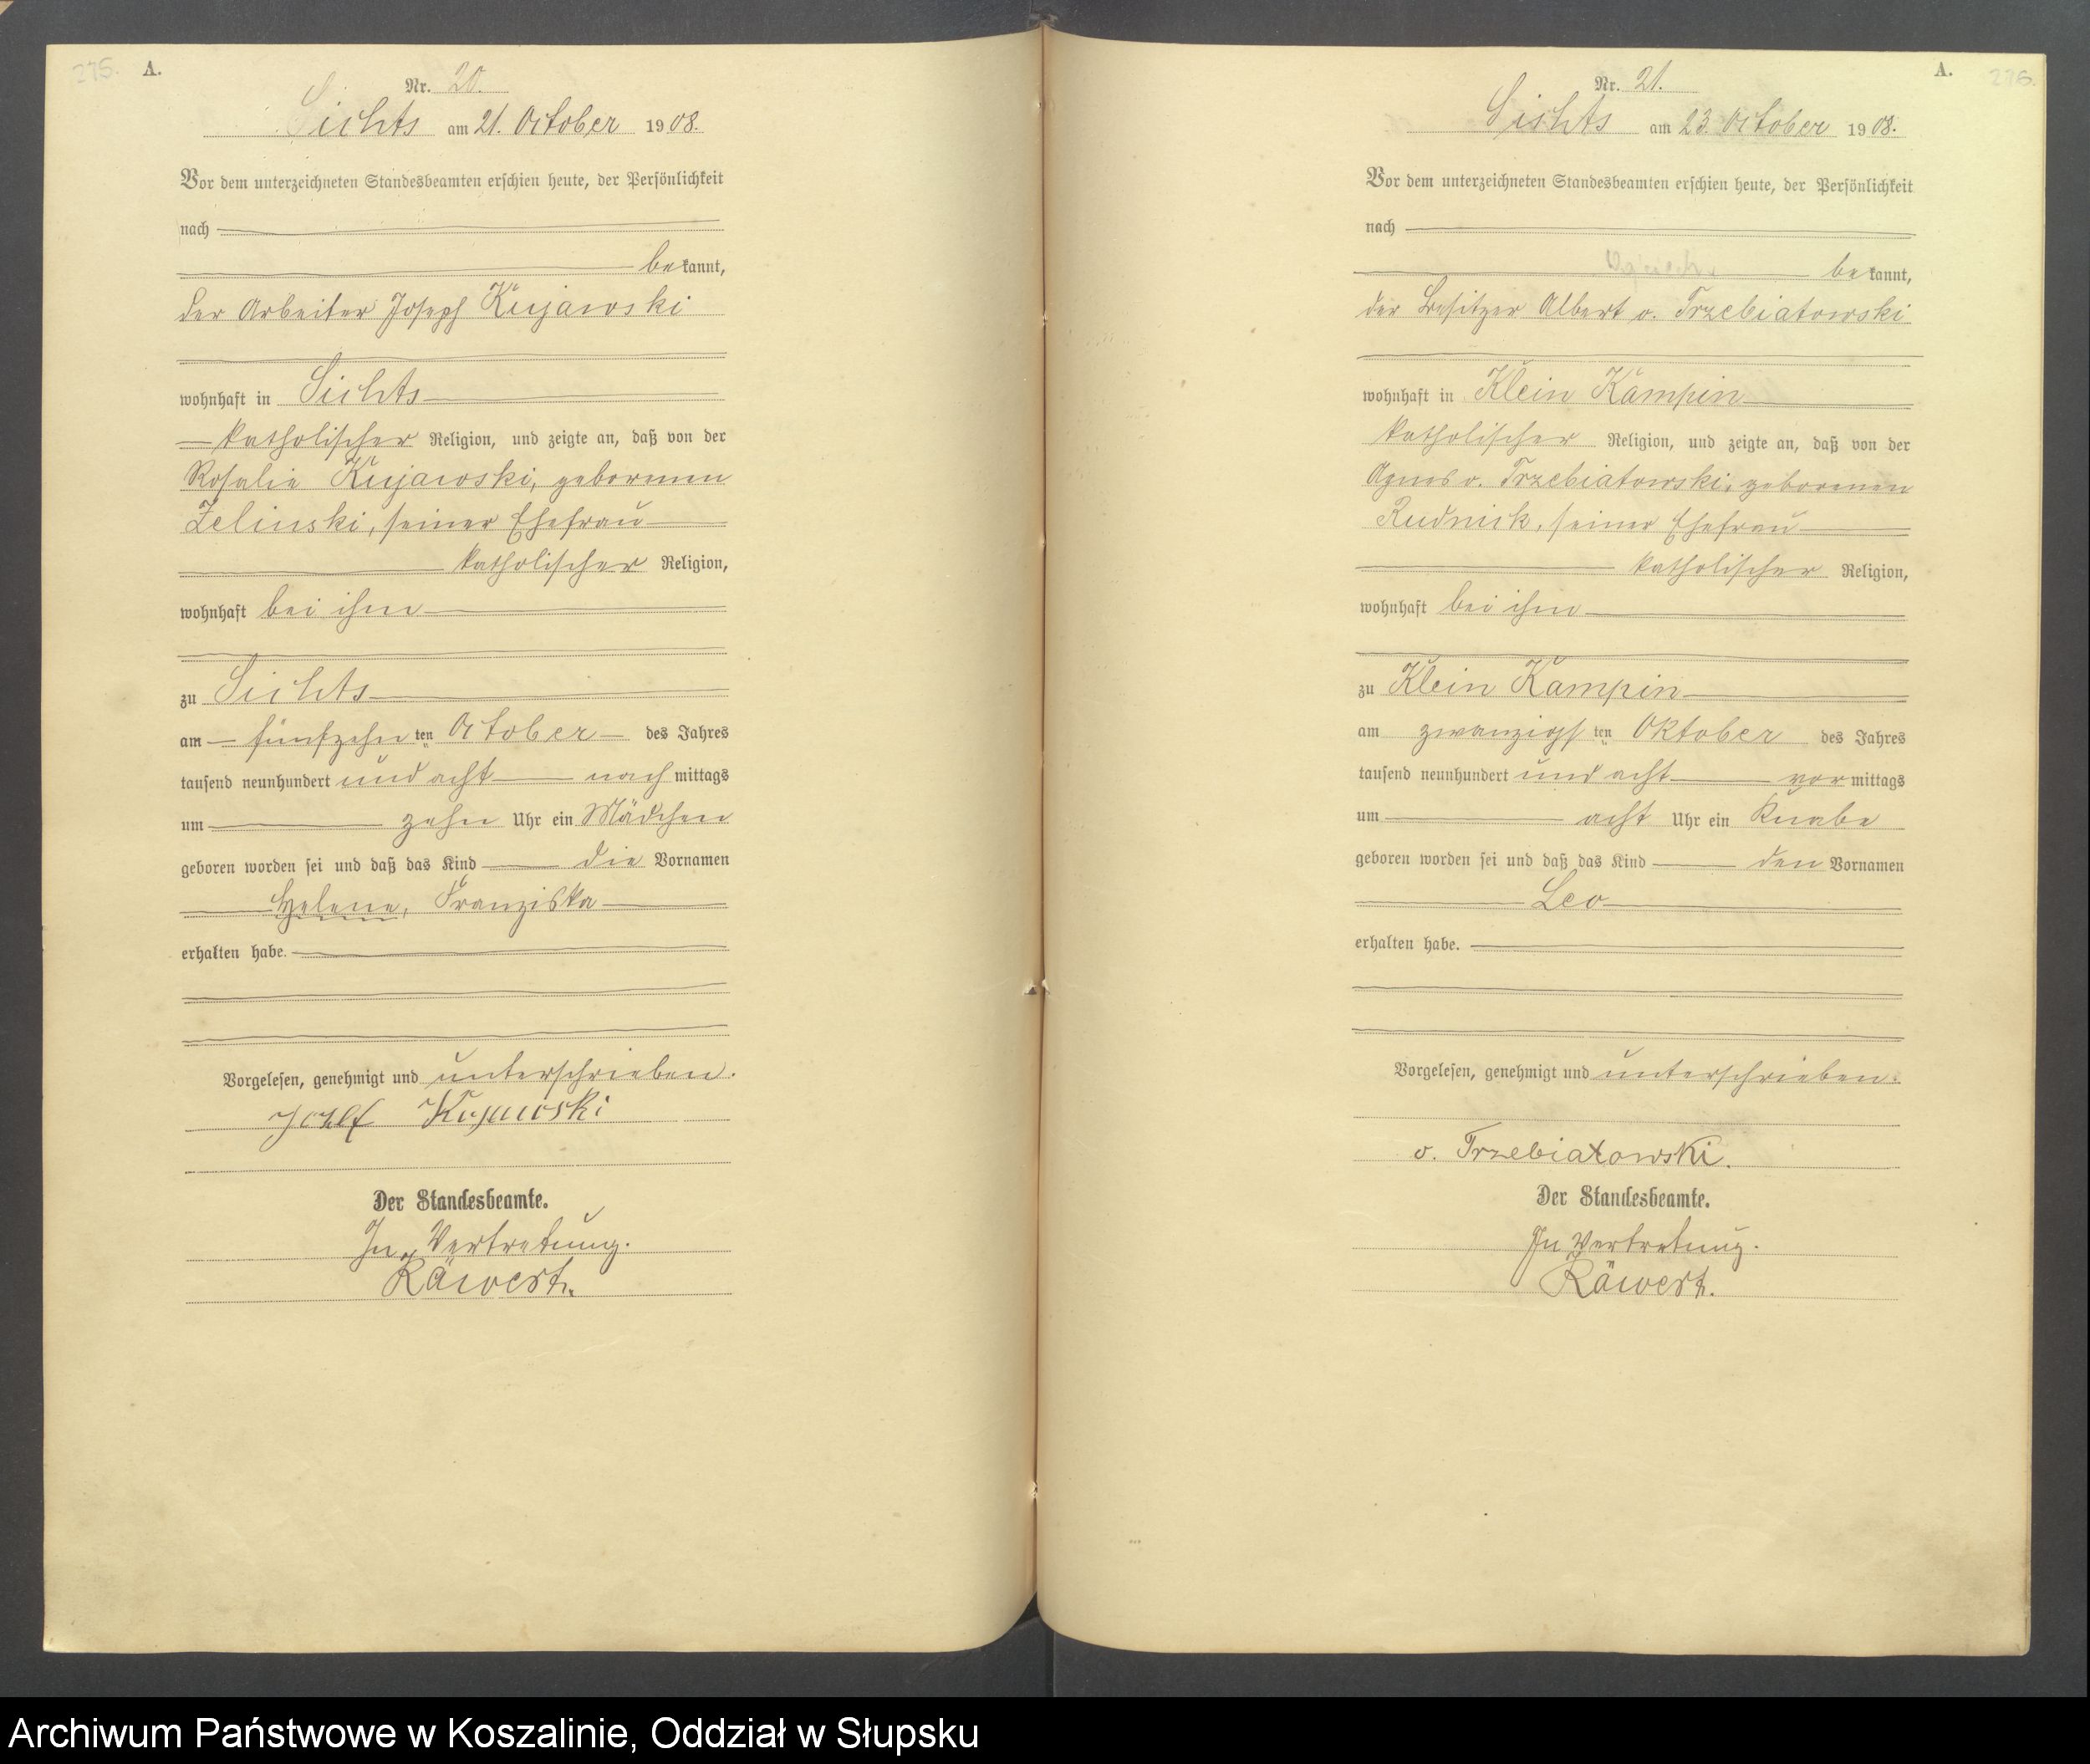 275. A.
Nr. 20.
Sichts am 21. October 1908.
Vor dem unterzeichneten Standesbeamten erschien heute, der Persönlichkeit
nach
bekannt,
der Arbeiter Joseph Kujawski
wohnhaft in Sichts
katholischer Religion, und zeigte an, daß von der
Rosalie Kujawski, geborenen
Zelinski, seiner Ehefrau
katholischer Religion,
wohnhaft bei ihm
zu Sichts
am fünfzehnten October des Jahres
tausend neunhundert und acht nachmittags
um zehn Uhr ein Mädchen
geboren worden sei und daß das Kind die Vornamen
Helene, Franziska
erhalten habe.
Vorgelesen, genehmigt und unterschrieben.
Jozef Kujawski
Der Standesbeamte.
In Vertretung.
Räwert.
A. 276.
Nr. 21.
Sichts am 23. October 1908.
Vor dem unterzeichneten Standesbeamten erschien heute, der Persönlichkeit
nach
bekannt,
der Besitzer Albert v. Trzebiatowski
wohnhaft in Klein Kampin
katholischer Religion, und zeigte an, daß von der
Agnes v. Trzebiatowski, geborenen
Rudnick, seiner Ehefrau
katholischer Religion,
wohnhaft bei ihm
zu Klein Kampin
am zwanzigsten Oktober des Jahres
tausend neunhundert und acht vormittags
um acht Uhr ein Knabe
geboren worden sei und daß das Kind den Vornamen
Leo
erhalten habe.
Vorgelesen, genehmigt und unterschrieben.
v. Trzebiatowski.
Der Standesbeamte.
In Vertretung.
Räwert.
Archiwum Państwowe w Koszalinie, Oddział w Słupsku